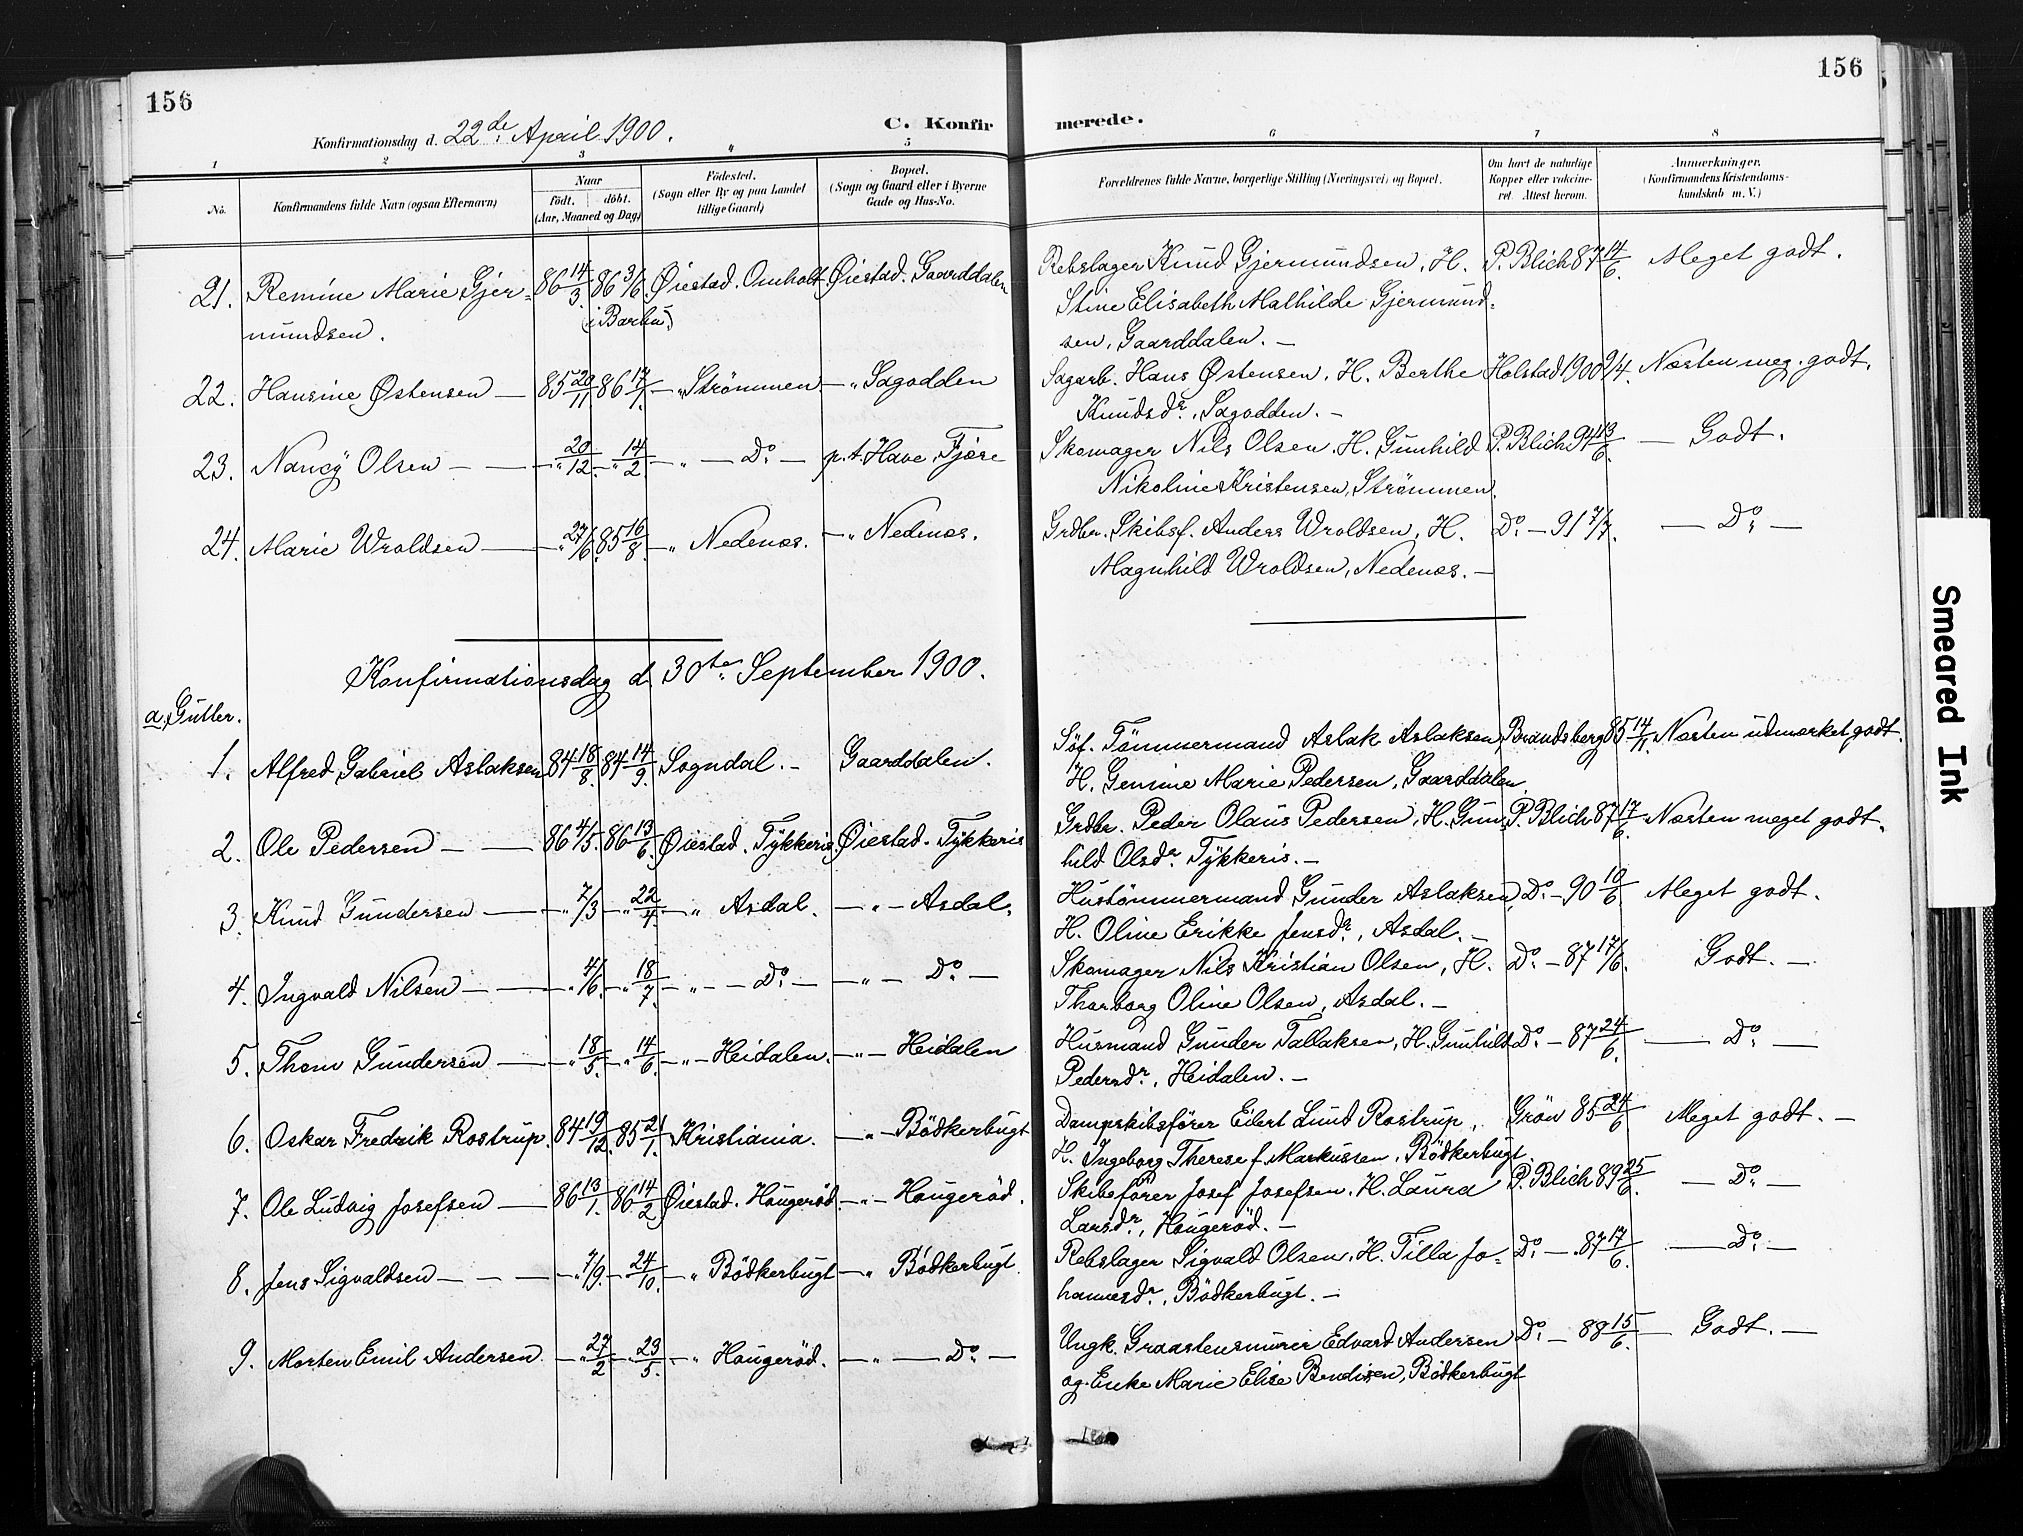 156
156
Konfirmationsdag d. 22de April 1900.
C. Konfir
merede.
1
2
3
"
5
6
7
8
No.
Konfirmandens fulde Navn (ogsaa Efternavn)
Naar
födt.
döbt.
(Aar, Maaned og Dag)
Födested.
(Sogn eller By og paa Landet
tillige Gaard)
Bopæl.
(Sogn og Gaard eller i Byerne
Gade og Hus-No.
Forældrenes fulde Navne, borgerlige Stilling (Næringsvei) og Bopæl.
Om havt de naturlige
Kopper eller vakcine-
ret. Attest herom.
Anmærkninger.
(Konfirmandens Kristendoms-
kundskab m. V.)
21. Remine Marie Gjer- 86 14/3. 86 3/6 Øiestad. Omholt Øiestad. Gaarddalen Rebslager Knud Gjermundsen, H. P. Blich 87 14/6. Meget godt.
mundsen. (i Barbu) Stine Elisabeth Mathilde Gjermund-
sen, Gaarddalen. —
22. Hansine Østensen — 85 20/11 86 17/1. — „ Strömmen — „ Sagodden Sagarb. Hans Østensen, H. Berthe Holstad 1900 9/4. Næsten meg. godt.
Knudsdr., Sagodden. —
23. Nancy Olsen — — „ 20/12. — „ 14/2. — „ — Do. — p.t. Have, Fjære Skomager Nils Olsen, H. Gunhild P. Blich 94 13/6. — Godt.
Nikoline Kristensen, Strömmen.
24. Marie Wroldsen — „ 27/6. 85 16/8. — „ Nedenæs. — „ Nedenæs. Grdbr. Skibsf. Anders Wroldsen, H. Do. — 91 7/7. — Do. —
Magnhild Wroldsen, Nedenæs. —
Konfirmationsdag d. 30te September 1900.
a, Gutter.
1. Alfred Gabriel Aslaksen 84 18/8. 84 14/9. Sogndal. — Gaarddalen. Söf. Tömmermand Aslak Aslaksen, Brandsberg 85 14/11. Næsten udmærket godt.
H. Gemine Marie Pedersen, Gaarddalen.
2. Ole Pedersen — — 86 4/5. 86 13/6. Øiestad. Tykkeris Øiestad. Tykkeris Grdbr. Peder Olaus Pedersen, H. Gun- P. Blich 87 17/6. Næsten meget godt.
hild Olsdr. Tykkeris. —
3. Knud Gundersen — — „ 7/3 — „ 22/4. — „ Asdal. — „ — Asdal. Hustömmermand Gunder Aslaksen, Do. — 90 10/6 Meget godt.
H. Oline Erikke Jensdr., Asdal. —
4. Ingvald Nilsen — — „ 4/6. — „ 18/7. — „ — — Do. — — „ — Do. — Skomager Nils Kristian Olsen, H. Do. — 87 17/6. Godt. —
Thorborg Oline Olsen, Asdal. —
5. Thom Gundersen — — „ 18/5. — „ 14/6. — „ — Heidalen. — „ — Heidalen Husmand Gunder Tallaksen, H. Gunhild Do. — 87 24/6. — Do. —
Pedersdr., Heidalen. —
6. Oskar Fredrik Rostrup. 84 19/12. 85 21/1. Kristiania. — „ — Bödkerbugt Dampskibsförer Eilert Lund Rostrup, Grön 85 24/6 Meget godt. —
H. Ingeborg Therese f. Markussen, Bödkerbugt.
7. Ole Ludvig Josefsen — 86 13/1. 86 14/2 Øiestad. Hougeröd. — „ — Hougeröd. Skibsförer Josef Josefsen, H. Laura P. Blich 89 25/6. — Do. —
Larsdr., Hougeröd. —
8. Jens Sigvaldsen — — — — „ 7/9. — „ 24/10. — „ Bödkerbugt — „ Bödkerbugt. Rebslager Sigvald Olsen, H. Tilla Jo- Do. — 87 17/6. — Do. —
hannesdr., Bödkerbugt. —
9. Morten Emil Andersen. — „ 27/2 — „ 23/5. — „ Hougeröd. — „ — Do. — Ungk. Graastensmurer Edvard Andersen Do. — 88 15/6. — Godt. —
og Enke Marie Elise Bendixen, Bödkerbugt
Smeared Ink